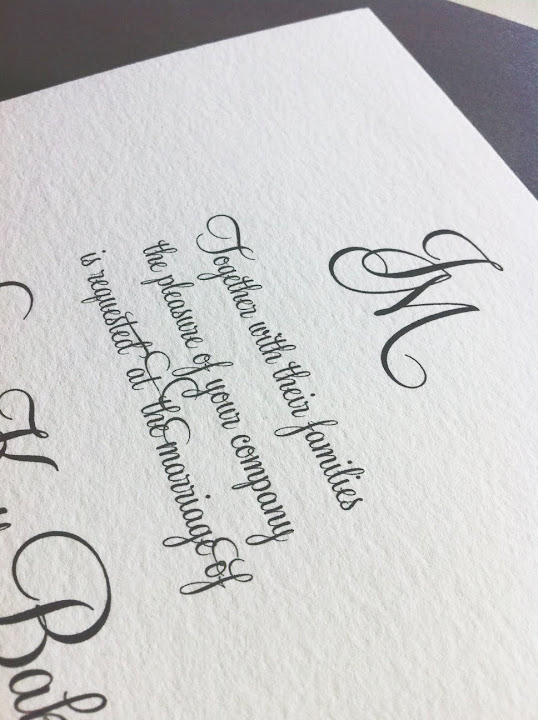 JM
Together with their families
the pleasure of your company
is requested at the marriage of